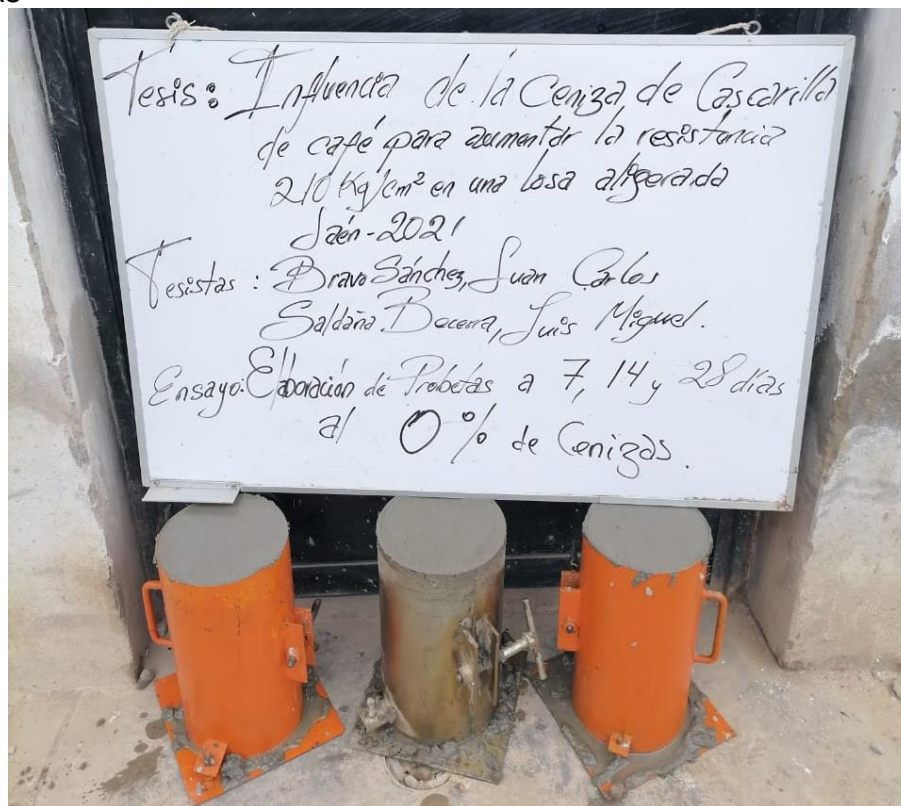 Tésis: Influencia de la Ceniza de Cascarilla
de café para aumentar la resistencia
210 Kg/cm² en una Losa aligerada
Jaén-2021
Tesistas: Bravo Sánchez, Juan Carlos
Saldaña Becerra, Luis Miguel.
Ensayo: Elaboración de Probetas a 7, 14 y 28 días
al 0% de Cenizas.